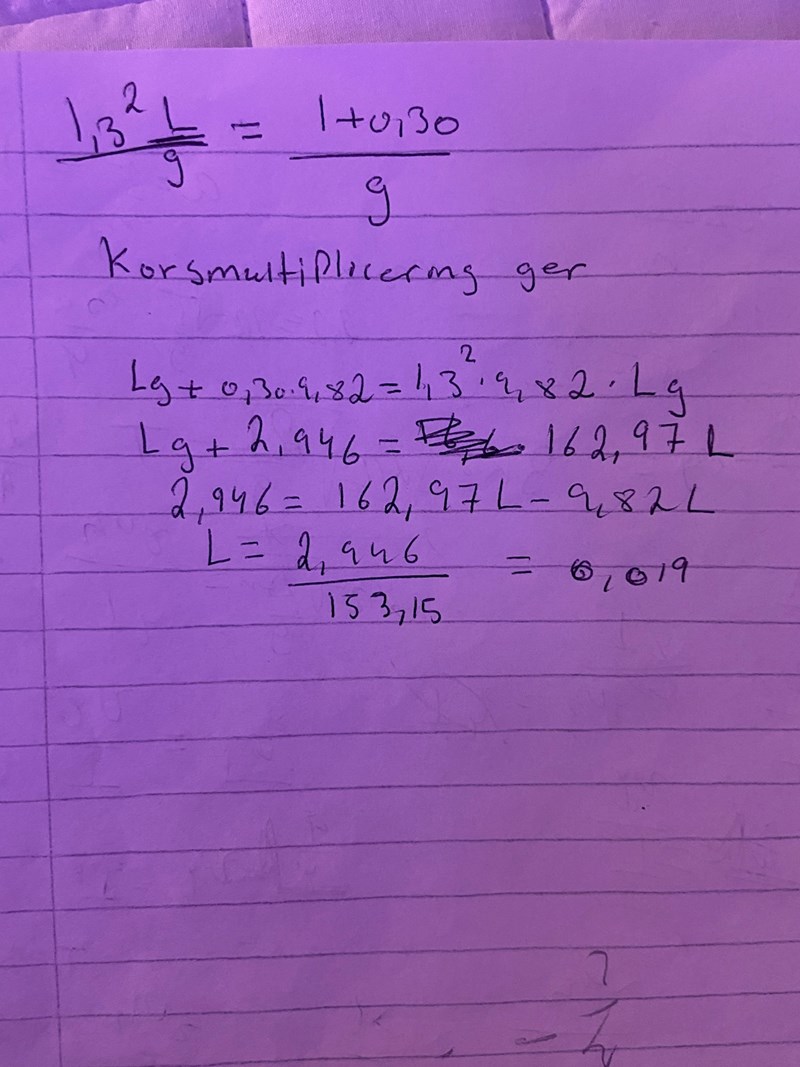 1,3² L/g = 1+0,30/g
Korsmultiplicering ger
Lg + 0,30·9,82 = 1,3²·9,82·Lg
Lg + 2,946 = 162,97 L
2,946 = 162,97 L - 9,82 L
L = 2,946/153,15 = 0,019